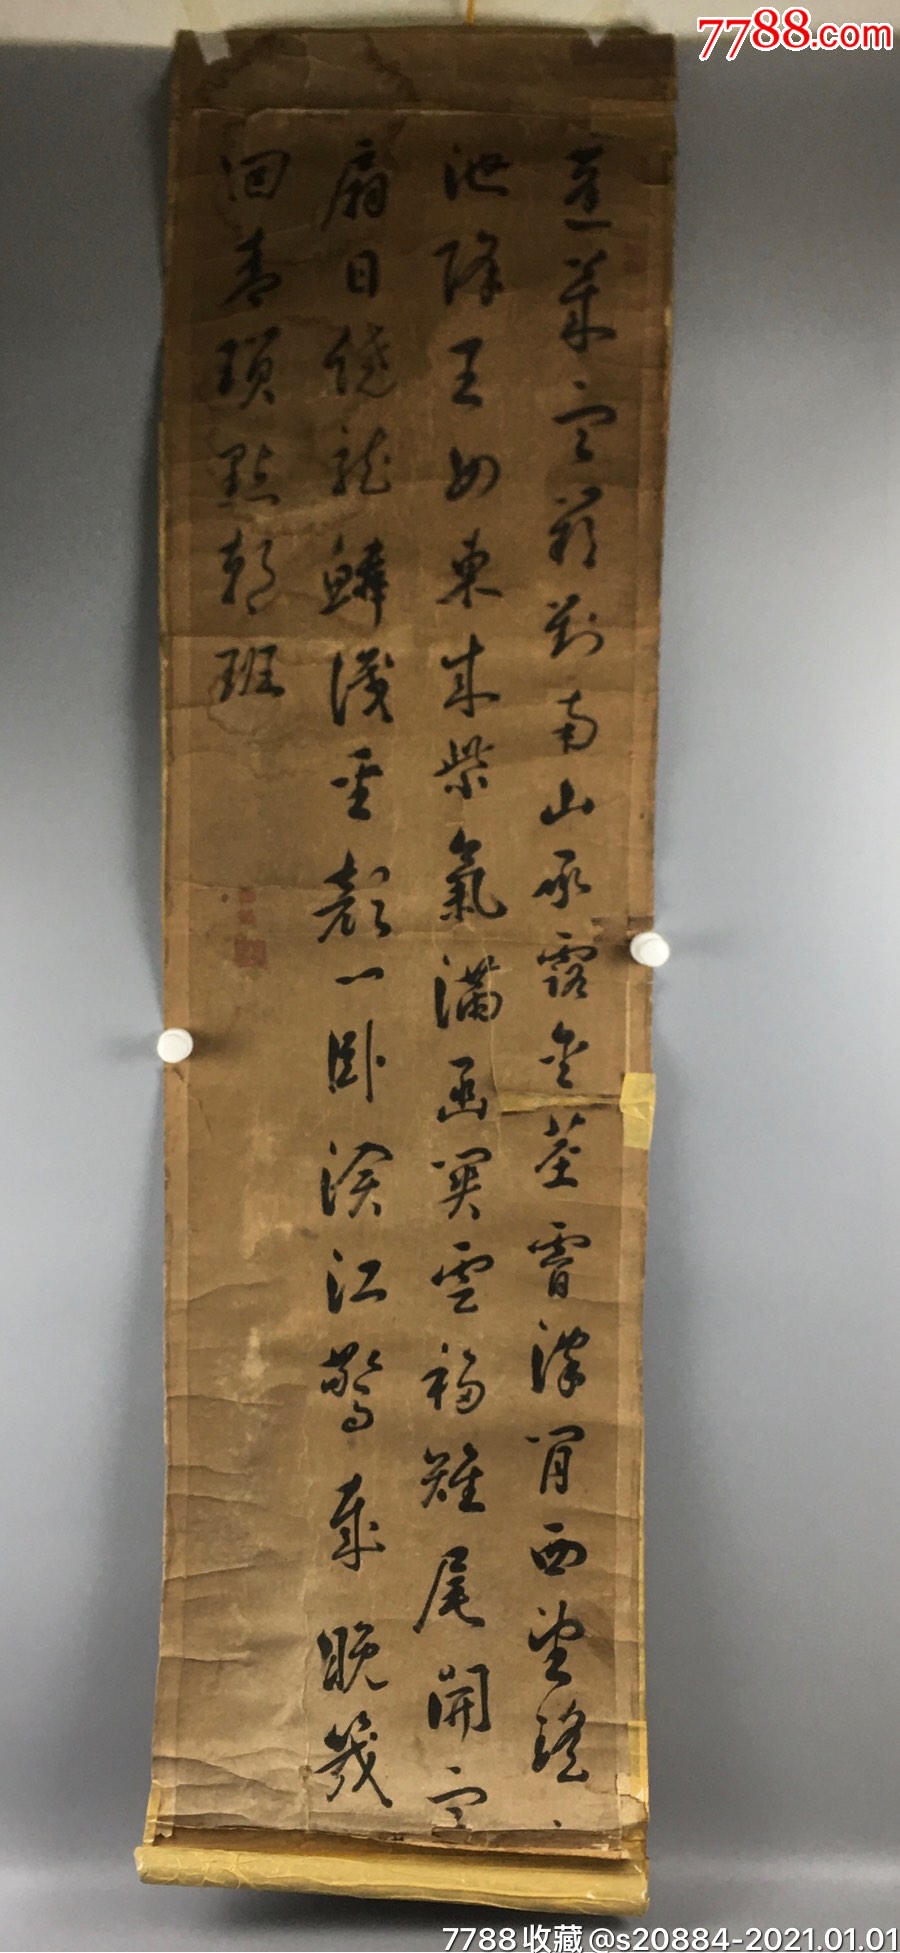 7788.com
蓬萊宮闕對南山承露金莖霄漢間西望瑤
池降王母東來紫氣滿函關雲移雉尾開宮
扇日繞龍鱗識聖顏一臥滄江驚歲晚幾
回青瑣點朝班
7788收藏@s20884-2021.01.01